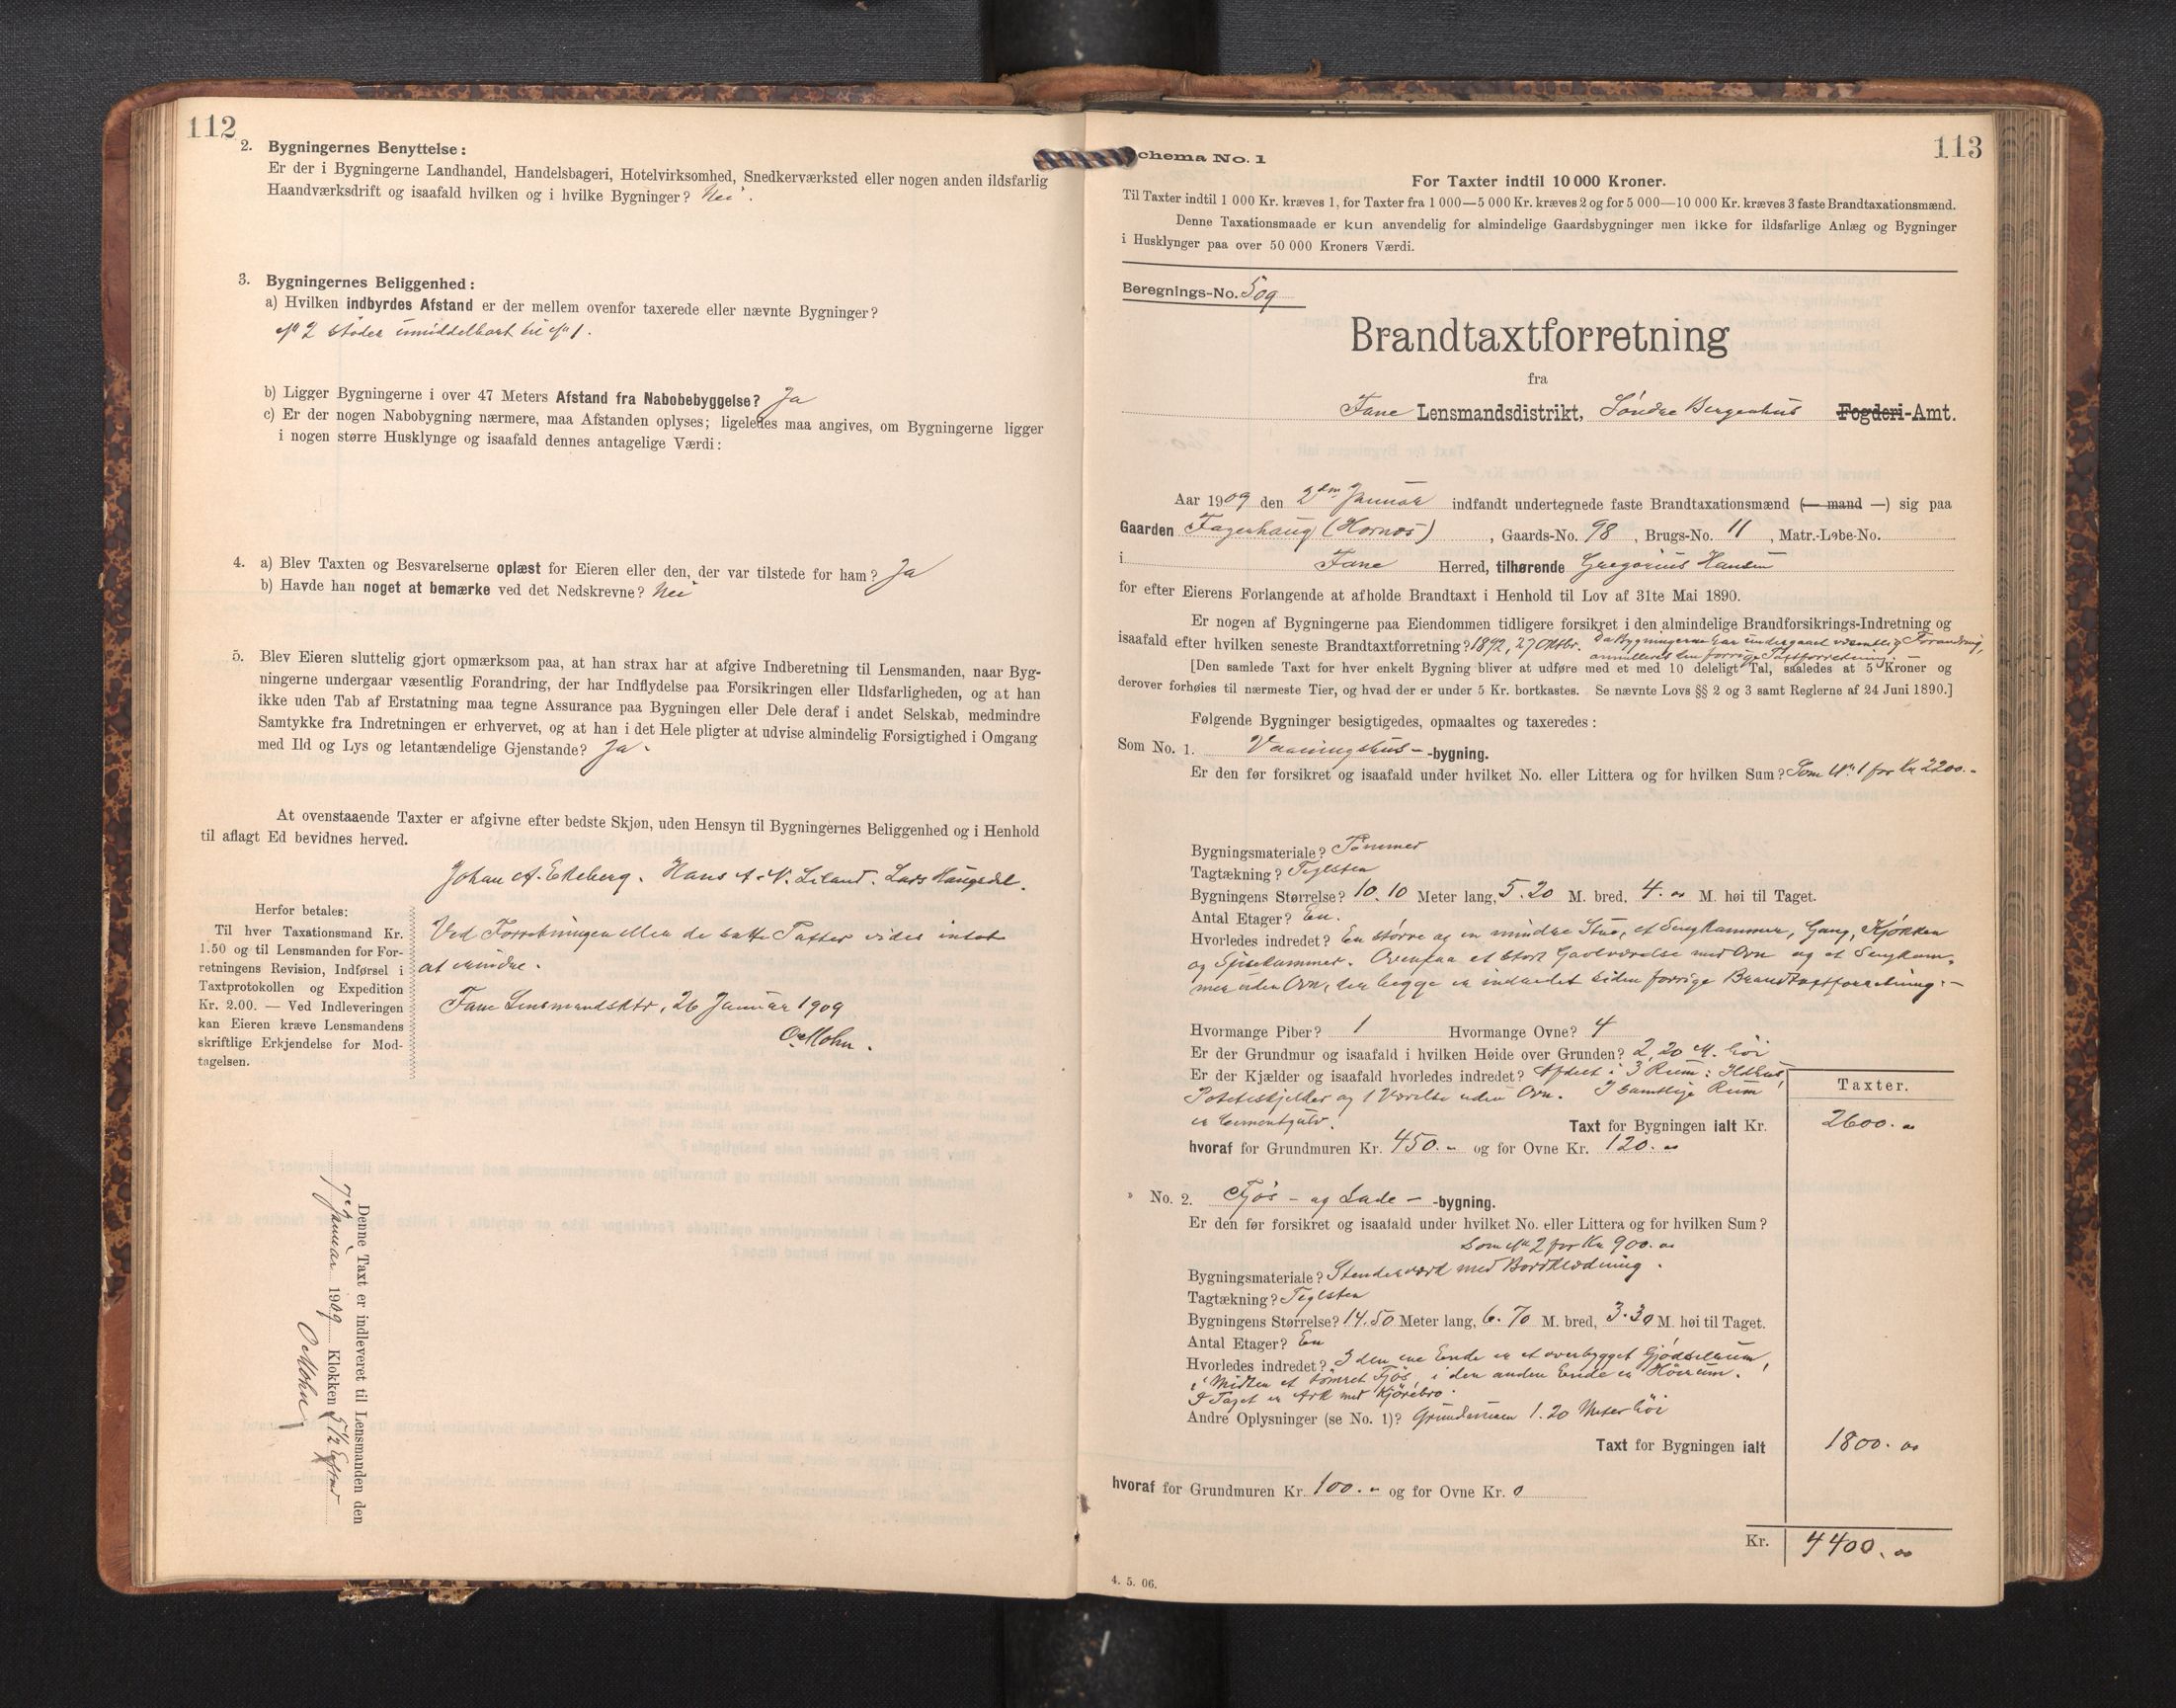 112
2. Bygningernes Benyttelse:
Er der i Bygningerne Landhandel, Handelsbageri, Hotelvirksomhed, Snedkerværksted eller nogen anden ildsfarlig
Haandværksdrift og isaafald hvilken og i hvilke Bygninger? Nei.
3. Bygningernes Beliggenhed:
a) Hvilken indbyrdes Afstand er der mellem ovenfor taxerede eller nævnte Bygninger?
No 2 støder umiddelbart til No 1.
b) Ligger Bygningerne i over 47 Meters Afstand fra Nabobebyggelse? Ja
c) Er der nogen Nabobygning nærmere, maa Afstanden oplyses; ligeledes maa angives, om Bygningerne ligger
i nogen større Husklynge og isaafald dennes antagelige Værdi:
4. a) Blev Taxten og Besvarelserne oplæst for Eieren eller den, der var tilstede for ham? Ja
b) Havde han noget at bemærke ved det Nedskrevne? Nei
5. Blev Eieren sluttelig gjort opmærksom paa, at han strax har at afgive Indberetning til Lensmanden, naar Byg-
ningerne undergaar væsentlig Forandring, der har Indflydelse paa Forsikringen eller Ildsfarligheden, og at han
ikke uden Tab af Erstatning maa tegne Assurance paa Bygningen eller Dele deraf i andet Selskab, medmindre
Samtykke fra Indretningen er erhvervet, og at han i det Hele pligter at udvise almindelig Forsigtighed i Omgang
med Ild og Lys og letantændelige Gjenstande? Ja.
At ovenstaaende Taxter er afgivne efter bedste Skjøn, uden Hensyn til Bygningernes Beliggenhed og i Henhold
til aflagt Ed bevidnes herved.
Johan A. Ekeberg. Hans A. N. Liland. Lars Haugsdal.
Herfor betales:
Til hver Taxationsmand Kr.
1.50 og til Lensmanden for For-
retningens Revision, Indførsel i
Taxtprotokollen og Expedition
Kr. 2.00. — Ved Indleveringen
kan Eieren kræve Lensmandens
skriftlige Erkjendelse for Mod-
tagelsen.
Ved Forretningen eller de satte Taxter vides intet
at erindre.
Fane Lensmandsktr, 26 Januar 1909
O. Mohn.
Denne Taxt er indleveret til Lensmanden den
7de Januar 1909 Klokken 5 1/2 Efterm
O Mohn
113
Schema No. 1
For Taxter indtil 10 000 Kroner.
Til Taxter indtil 1 000 Kr. kræves 1, for Taxter fra 1 000—5 000 Kr. kræves 2 og for 5 000—10 000 Kr. kræves 3 faste Brandtaxationsmænd.
Denne Taxationsmaade er kun anvendelig for almindelige Gaardsbygninger men ikke for ildsfarlige Anlæg og Bygninger
i Husklynger paa over 50 000 Kroners Værdi.
Beregnings-No. 509
Brandtaxtforretning
fra
Fane Lensmandsdistrikt, Søndre Bergenhus Fogderi-Amt.
Aar 1909 den 2den Januar indfandt undertegnede faste Brandtaxationsmænd (— mand —) sig paa
Gaarden Fagerhaug (Hornæs), Gaards-No. 98, Brugs-No. 11, Matr.-Løbe-No.
i Fane Herred, tilhørende Gregorius Hansen
for efter Eierens Forlangende at afholde Brandtaxt i Henhold til Lov af 31te Mai 1890.
Er nogen af Bygningerne paa Eiendommen tidligere forsikret i den almindelige Brandforsikrings-Indretning og
isaafald efter hvilken seneste Brandtaxtforretning? 1892, 27 Oktbr. Da Bygningerne har undergaaet væsentlig Forandring,
annulleres den forrige Taxtforretning. —
[Den samlede Taxt for hver enkelt Bygning bliver at udføre med et med 10 deleligt Tal, saaledes at 5 Kroner og
derover forhøies til nærmeste Tier, og hvad der er under 5 Kr. bortkastes. Se nævnte Lovs §§ 2 og 3 samt Reglerne af 24 Juni 1890.]
Følgende Bygninger besigtigedes, opmaaltes og taxeredes:
Som No. 1. Vaaningshus- -bygning.
Er den før forsikret og isaafald under hvilket No. eller Littera og for hvilken Sum? Som No. 1 for Kr 2200.-
Bygningsmateriale? Tømmer
Tagtækning? Teglsten
Bygningens Størrelse? 10.10 Meter lang, 5.20 M. bred, 4.00 M. høi til Taget.
Antal Etager? En.
Hvorledes indredet? En større og en mindre Stue, et Sengkammer, Gang, Kjøkken
og Spisekammer. Ovenpaa et stort Gavlværelse med Ovn og et Sengkam-
mer uden Ovn, der begge er indredet siden forrige Brandtaxtforretning. —
Hvormange Piber? 1 Hvormange Ovne? 4
Er der Grundmur og isaafald i hvilken Høide over Grunden? 2,20 M. høi
Er der Kjælder og isaafald hvorledes indredet? Afdelt i 3 Rum: Ildhus,
Poteteskjelder og 1 Værelse uden Ovn. I samtlige Rum
er Cementgulv.
Taxter.
Taxt for Bygningen ialt Kr. 2600.00
hvoraf for Grundmuren Kr. 450.- og for Ovne Kr. 120.00
» No. 2. Fjøs- og Lade- -bygning.
Er den før forsikret og isaafald under hvilket No. eller Littera og for hvilken Sum?
Som No 2 for Kr 900.00
Bygningsmateriale? Stenderværk med Bordklædning.
Tagtækning? Teglsten
Bygningens Størrelse? 14.50 Meter lang, 6.70 M. bred, 3.30 M. høi til Taget.
Antal Etager? En
Hvorledes indredet? I den ene Ende er et overbygget Gjødselrum,
i Midten et tømret Fjøs, i den anden Ende er Hørum.
I Taget er Ark med Kjørebro.
Andre Oplysninger (se No. 1)? Grundmuren 1.20 Meter høi
Taxt for Bygningen ialt 1800.00
hvoraf for Grundmuren Kr. 100.- og for Ovne Kr. 0
Kr. 4400.00
4. 5. 06.